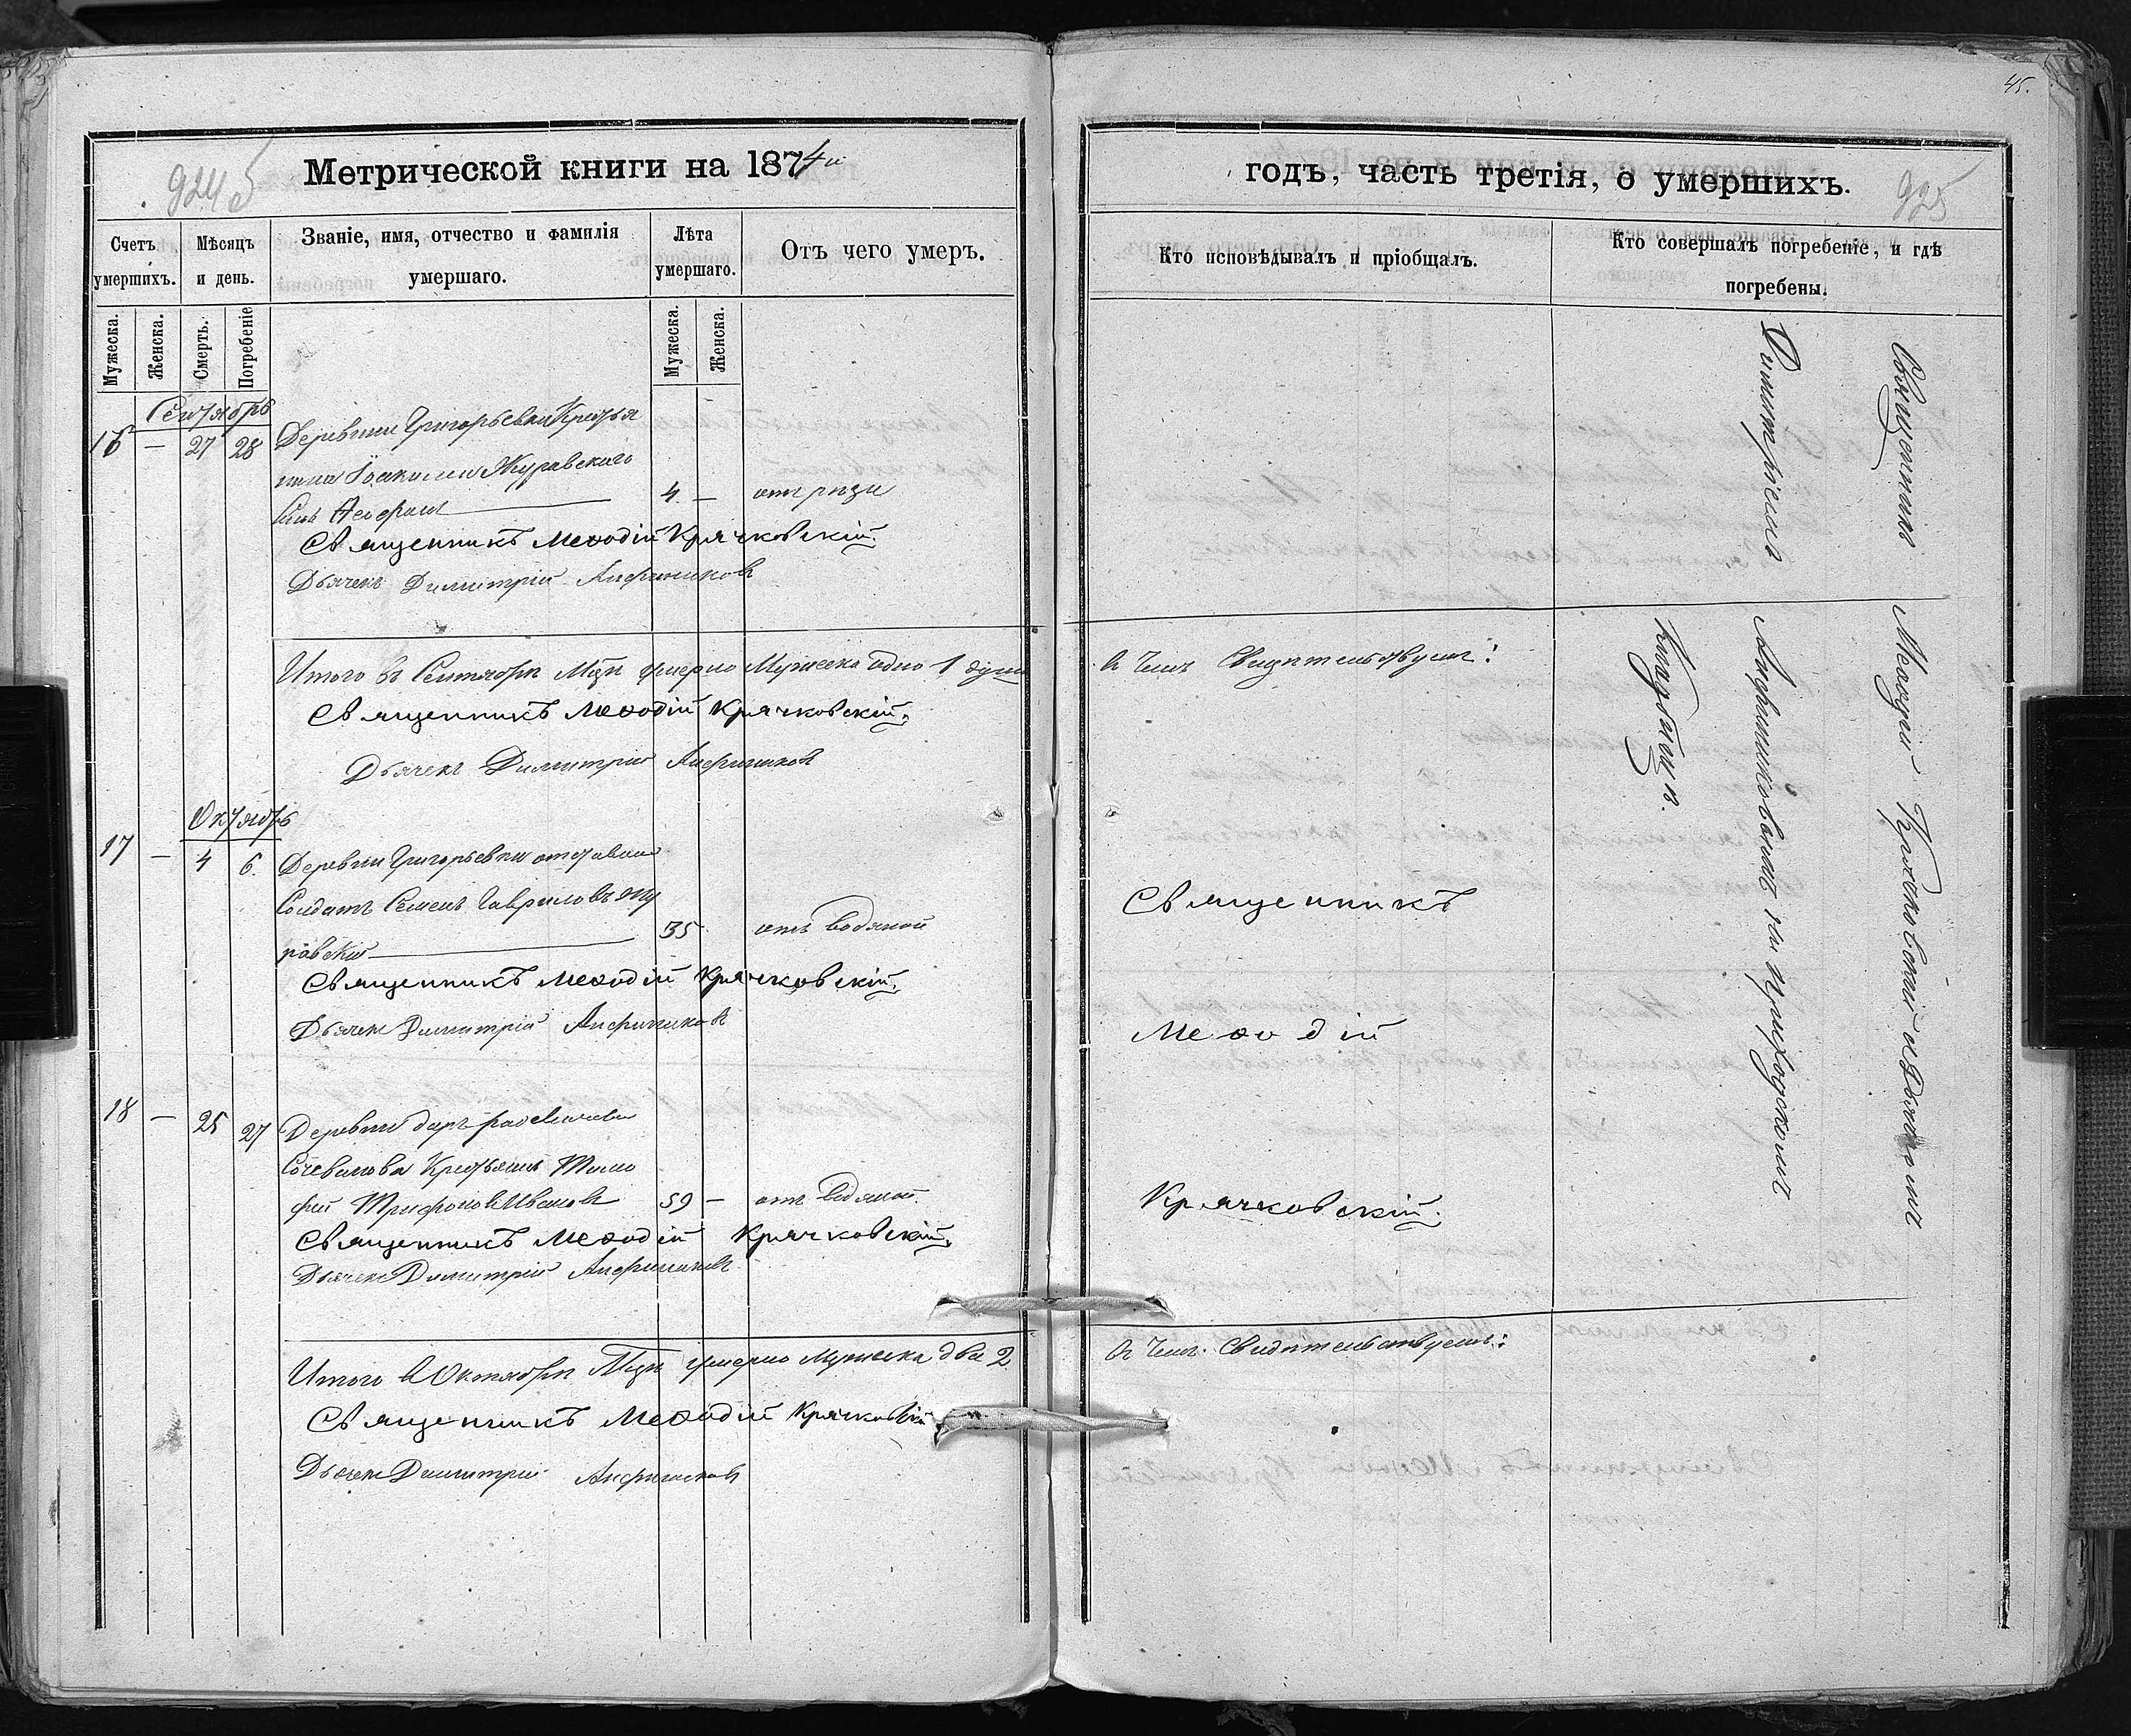 45.
924 б
Метрической книги на 1874й
годъ, часть третія, о умершихъ.
925
Счетъ умершихъ.
Мѣсяцъ и день.
Званіе, имя, отчество и фамилія умершаго.
Лѣта умершаго.
Отъ чего умеръ.
Кто исповѣдывалъ и пріобщалъ.
Кто совершалъ погребеніе, и гдѣ погребены.
Мужеска.
Женска.
Смерть.
Погребеніе
Мужеска.
Женска.
Сентябрь
16 — 27 28
Деревни Григорьевки Крестья
нина Іоакима Журавскаго
сынъ
4 —
Священникъ Меѳодій Крячковскій.
Дьячекъ Димитрій Анфиногеновъ
Итого въ Сентябрѣ Мцѣ умерло Мужеска одна 1 душа
Священникъ Меѳодій Крячковскій.
Дьячекъ Димитрій
Октябрь
17 — 4 6.
Деревни Григорьевки отставной
Солдатъ Семенъ Гавриловъ Жу
равскій
35 отъ водяной
Священникъ Меѳодій Крячковскій.
Дьячекъ Димитрій
18 — 25 27
Деревни
Крестьянинъ Тимо
фей Трифоновъ Ивановъ
59 — отъ водяной.
Священникъ Меѳодій Крячковскій.
Дьячекъ Димитрій
Итого въ Октябрѣ Мцѣ умерло Мужеска два 2
Священникъ Меѳодій Крячковскій
Дьячекъ Димитрій
въ чемъ Свидѣтельствуемъ:
Священникъ
Меѳодій
Крячковскій.
въ чемъ Свидѣтельствуемъ:
Священникъ
Меѳодій Крячковскій съ Дьячкомъ
Димитріемъ
на Приходскомъ
Кладбищѣ.